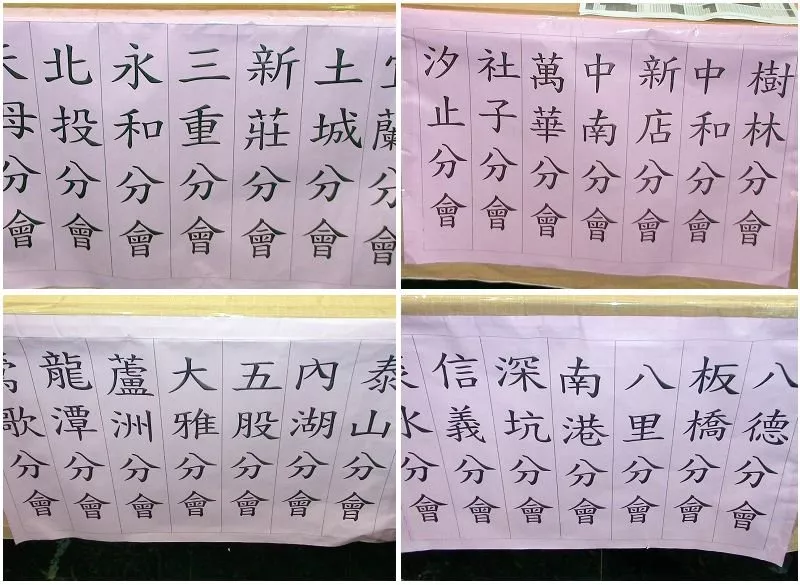 宜蘭分會
土城分會
新莊分會
三重分會
永和分會
北投分會
天母分會
樹林分會
中和分會
新店分會
中南分會
萬華分會
社子分會
汐止分會
泰山分會
內湖分會
五股分會
大雅分會
蘆洲分會
龍潭分會
鶯歌分會
八德分會
板橋分會
八里分會
南港分會
深坑分會
信義分會
水分會